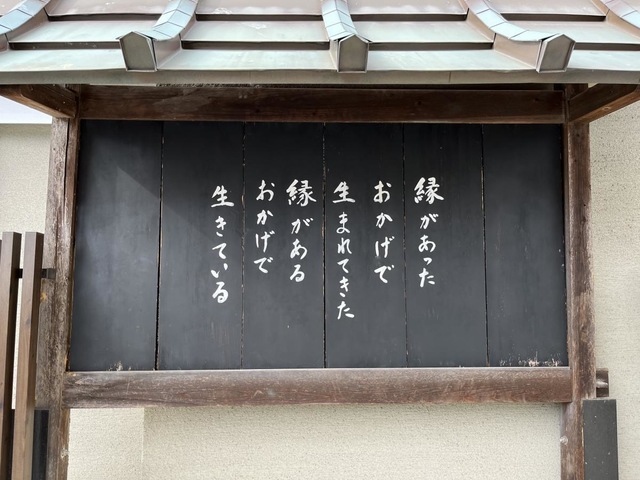 縁があった
おかげで
生まれてきた
縁がある
おかげで
生きている